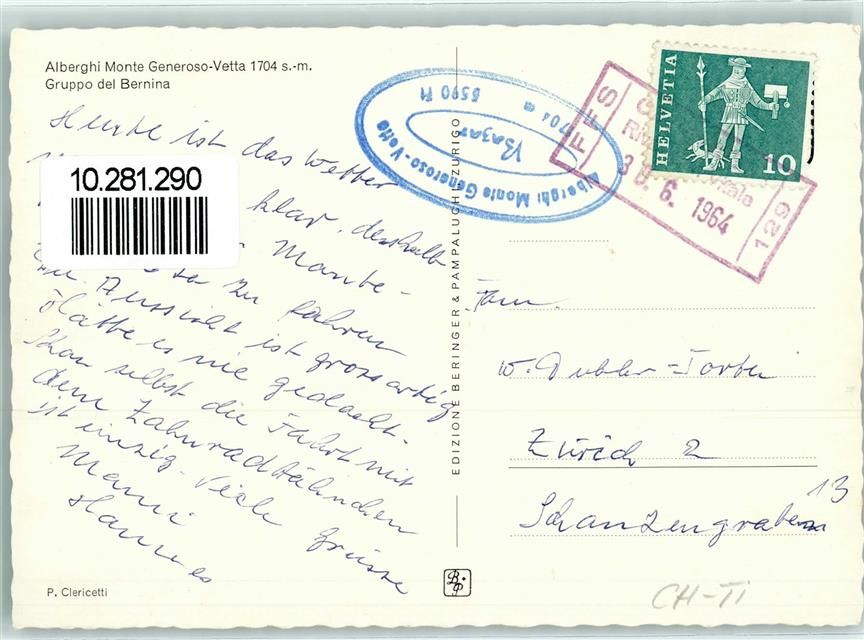 Alberghi Monte Generoso-Vetta 1704 s.-m.
Gruppo del Bernina
Heute ist das Wetter
10.281.290
klar, deshalb
Monte-
zu fahren
Die Aussicht ist grossartig
hätte es nie gedacht.
Schon selbst die Fahrt mit
dem Zahnradbähnchen
ist einzig. Viele Grüsse
Mami
Hannes
P. Clericetti
EDIZIONE BERINGER & PAMPALUCHI ZURIGO
Alberghi Monte Generoso-Vetta
Bazar
1704 m
5590 Ft
FFS
30.6.1964
129
HELVETIA
10
Fam.
W. Dubler-Forter
Zürich 2
Schanzengraben 13
B.P
CH-TI